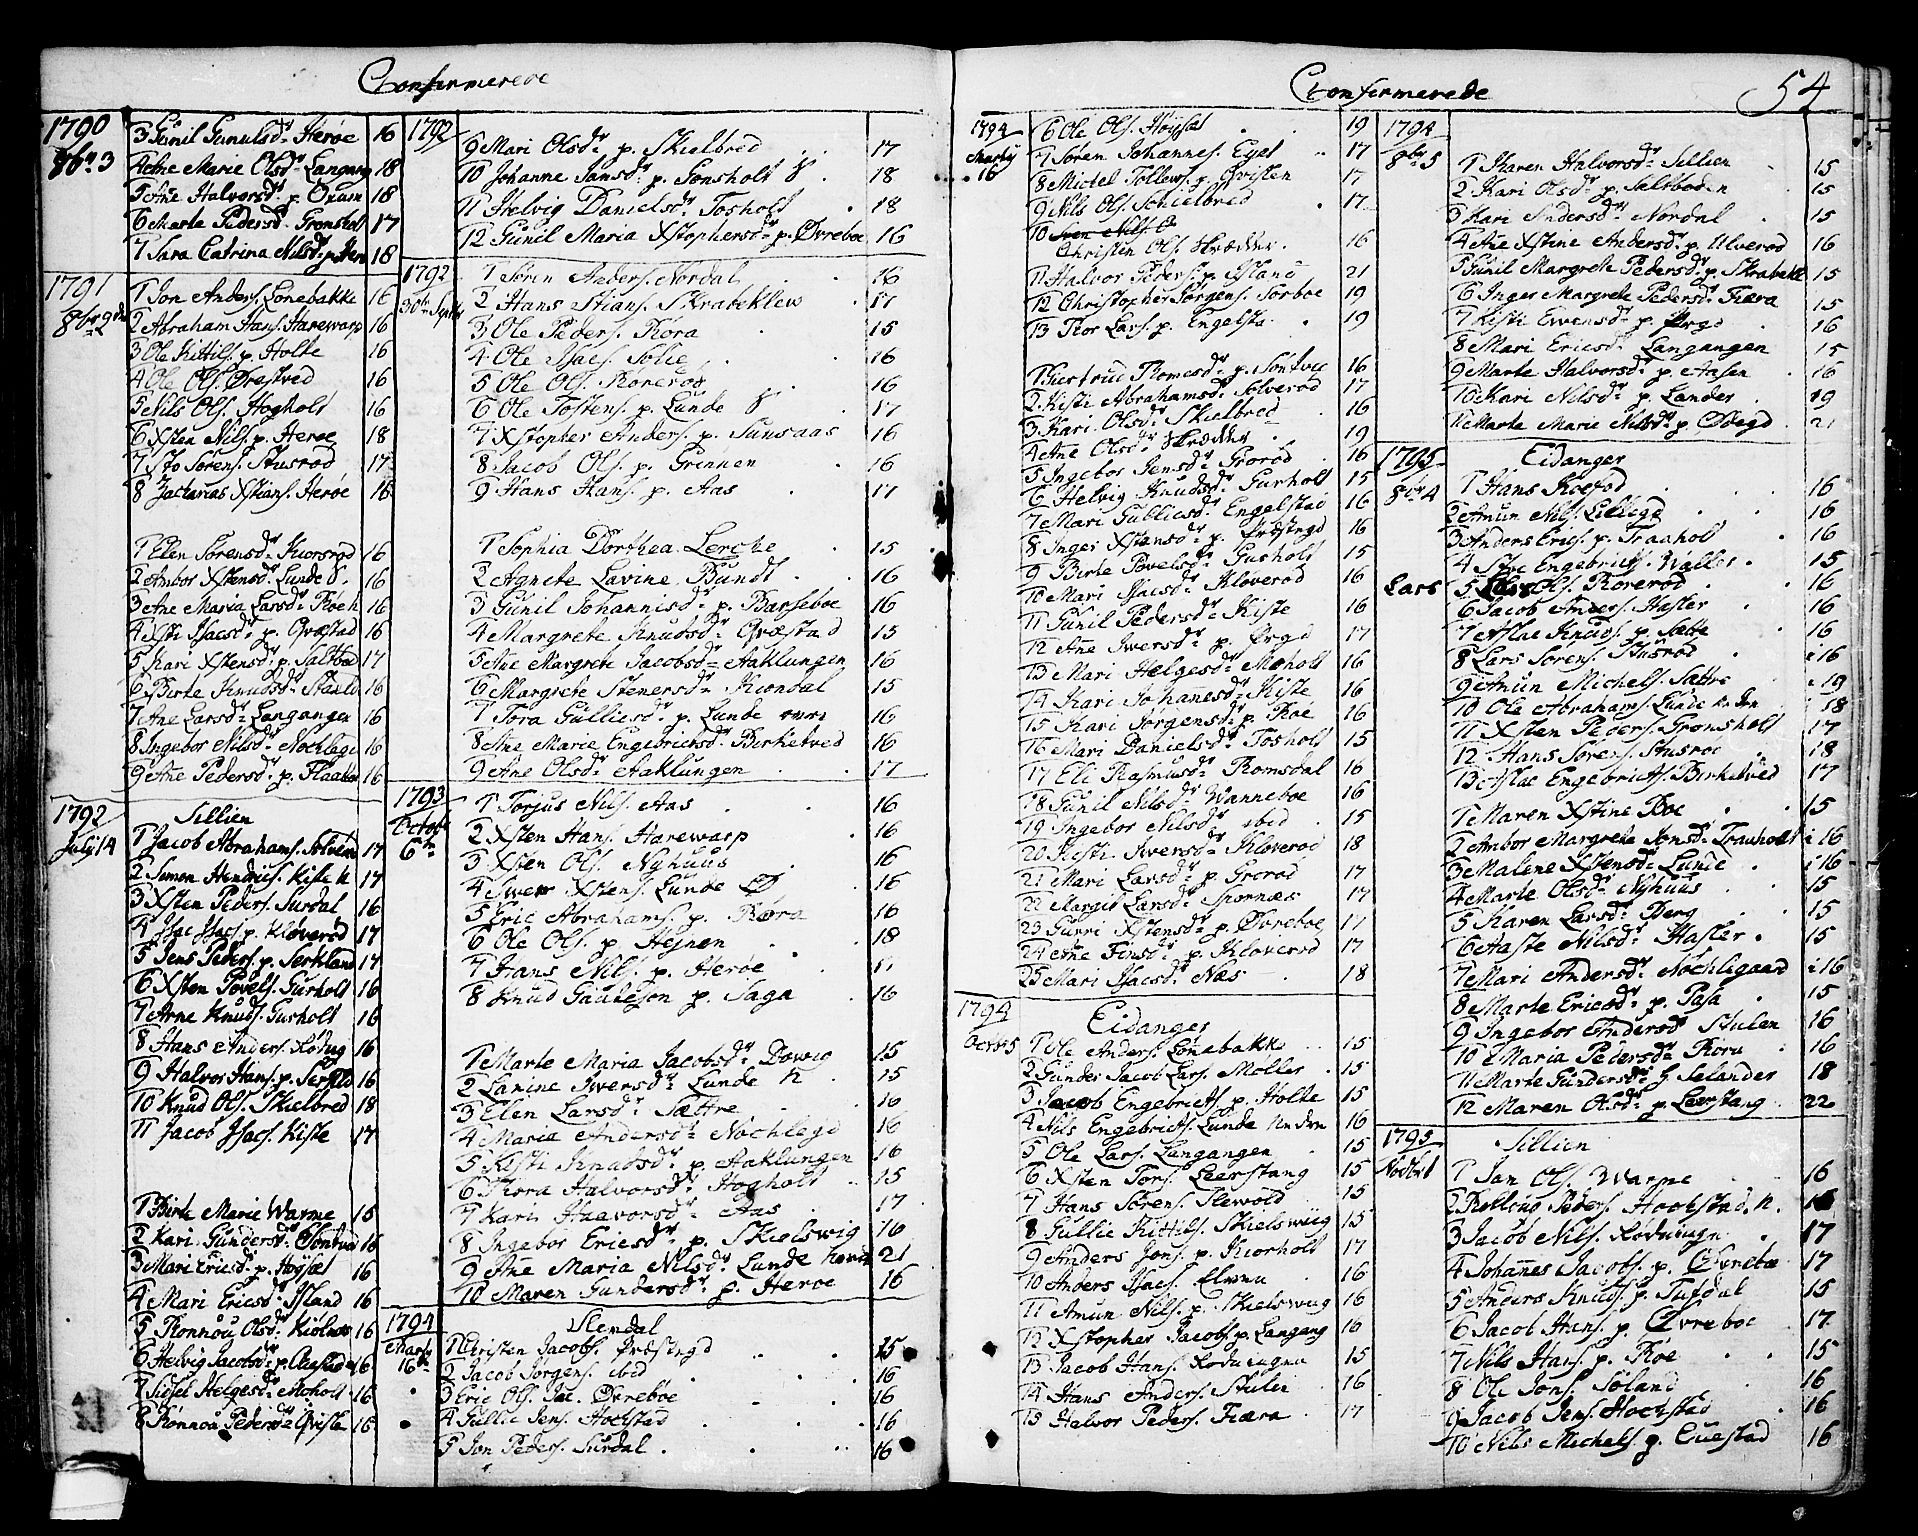 Confirmerede
1790
8br 3
3 Gunil Gunulsdr Herøe 16
4 Ane Marie Olsdr Langang 18
5 Ane Halvorsdr p. Oxum 18
6 Marte Pedersdr Gromsholt 17
7 Sara Catrina Nilsdr p. Her 18
1791
8br 9de
1 Jon Anders. Lønebakke 16
2 Abraham Hans. Harewarp 16
3 Ole Kittils. p. Holte 16
4 Ole Ols. Ørestved 16
5 Nils Ols. Hogholt 16
6 Xsten Nils. p. Herøe 18
7 Sørens. Stusrød 17
8 Zacharias Xstians. Herøe 16
1 Elen Sørensdr Korsrød 16
2 Ambor Xstensdr Lunde 16
3 Ane Maria Larsdr Røeh 16
4 Xsti Isacsdr p. Qvæstad 16
5 Kari Xstensdr p. Saltboe 17
6 Birte Knudsdr 16
7 Ane Larsdr Langangen 16
8 Ingebor Nilsdr Nochlegd 16
9 Ane Pedersdr p. Flaaten 16
1792
July 14
Sillien
1 Jacob Abrahams. Solvern 17
2 Simon Hendrics. Kiste 17
3 Xsten Peders. Surdal 16
4 Isac Isacs. p. Kløverød 17
5 Jens Peders. p. Serkland 17
6 Xsten Povels. Gurholt 16
7 Arne Knuds. Gusholt 16
8 Hans Anders. Rødng 16
9 Halvor Hans. p. 16
10 Knud Ols. Skielbred 18
11 Jacob Isacs. Kiste 17
1 Birte Marie Warpe 15
2 Kari Gundersdr Søntved 16
3 Mari Ericsdr p. Hogset 16
4 Mari Ericsdr Island 16
5 Rønnou Olsdr Kiølnes 16
6 Helvig Jacobsdr p. 16
7 Sidsel Helgesdr Moholt 16
8 Rønnou Pedersdr Qvislen 16
1792
9 Mari Olsdr p. Skielbred 17
10 Johanne Jansdr p. Sønsholt 18
11 Helvig Danielsdr Tosholt 18
12 Gunil Maria Xstophersdr p. Øvreboe 16
1792
30te Septbr
1 Søren Anders. Nordal 16
2 Hans Stians. Skrabeklew 17
3 Ole Peders. Røra 15
4 Ole Isacs. Solie 16
5 Ole Ols. Rørerød 16
6 Ole Tostens. p. Lunde 17
7 Xstopher Anders. p. Sunsaas 16
8 Jacob Ols. p. Grinnen 16
9 Hans Hans. p. Aas 17
1 Sophia Dorthea Lerche 15
2 Agnete Lavine Bundt 16
3 Gunil Johannisdr p. Barseboe 16
4 Margrete Knudsdr Qvæstad 15
5 Ane Margrete Jacobsdr Aaklungen 16
6 Margrete Stenersdr Kiendal 15
7 Tora Gulliesdr p. Lunde 16
8 Ane Marie Engebrictsdr Birketved 16
9 Ane Olsdr Aaklungen 17
1793
October 6te
1 Torjus Nils. Aas 16
2 Xsten Hans. Harewarp 16
3 Xsten Ols. Nyhuus 16
4 Iwer Xstens. Lunde Ø 16
5 Eric Abrahams. p. Røra 16
6 Ole Ols. p. Hejnen 18
7 Hans Nils. p. Herøe
8 Knud Gautesøn p. Saga 16
1 Marte Maria Jacobsdr Dowig 15
2 Lanine Iwersdr Lunde 15
3 Elen Larsdr Sættre 16
4 Maria Andersdr Nochlegd 16
5 Kisti Knudsdr p. Aaklungen 16
6 Tora Halvorsdr Hogholt 15
7 Kari Halvorsdr Aas 17
8 Ingebor Ericsdr p. Skielswig 16
9 Ane Maria Nilsdr Lunde 21
10 Maren Gundersdr p. Herøe 16
1794
Marty 16de
Slemdal
1 Christen Jacobs. Præstegd 15
2 Jacob Jørgens. ibid 16
3 Eric Ols. Øvreboe 16
4 Gullie Jens. Hochstad 16
5 Jon Peders. Surdal 16
Confirmerede
54
1794
Marty 16
6 Ole Ols. Høysæt 19
7 Søren Johannes. Eget 17
8 Michel Tollews. p. Qvislen 17
9 Nils Ols. Schielbred 17
10 Sven Nils.
Christen Ols. Skrædder 16
11 Halvor Peders. p. Island 21
12 Christopher Jørgens. Sorboe 19
13 Tor Lars. p. Engelsta 19
1 Giertrud Tomesdr p. Søntvet 16
2 Kisti Abrahamsdr Solverød 17
3 Kari Olsdr Skielbred 16
4 Ane Olsdr Skrædder 19
5 Ingebor Jensdr Grorød 16
6 Helvig Knudsdr Gurholt 15
7 Mari Gulliesdr Engelstad 16
8 Inger Xstensdr p. Præstegd 16
9 Birte Povelsdr Gusholt 15
10 Mari Isacsdr Kloverød 16
11 Gunil Pedersdr Kiste 16
12 Ane Iwersdr p. Ørgd 17
13 Mari Helgesdr Moholt 16
14 Kari Johannesdr Kiste 16
15 Kari Jørgensdr p. Roe 16
16 Mari Danielsdr Tosholt 15
17 Eli Rasmusdr Romsdal 16
18 Gunil Nilsdr Wanneboe 16
19 Ingebor Nilsdr ibid 15
20 Kisti Iwersdr Kloverød 18
21 Mari Larsdr p. Grorød 17
22 Margit Larsdr Spornæs 17
23 Gurri Xstensdr p. Øvreboe 17
24 Ane Finsdr p. Kloverød 17
25 Mari Isacsdr Næs 18
1794
Octor 5
Eidanger
1 Ole Anders. Lønebakke 15
2 Gunder Jacob Lars. Møller 15
3 Jacob Engebricts. p. Holte 15
4 Nils Engebricts. Lunde 16
5 Ole Lars. Langangen 15
6 Xsten Tors. Leerstang 15
7 Hans Sørens. Slewold 15
8 Gullie Kittils. Skielswiig 15
9 Anders Jons. p. Kiorholt 17
10 Anders Isacs. 16
11 Amun Nils. p. Skielswiig 16
12 Xstopher Jacobs. p. Langang 16
13 Jacob Hans. Rødningen 15
14 Hans Anders. Stulen 16
15 Halvor Peders. Fiæra 17
1794
8br 5
1 Karen Halvorsdr Sillien 15
2 Kari Olsdr p. Saltboden 15
3 Kari Andersdr Nordal 15
4 Ane Xstine Andersdr p. Ulverød 16
5 Gunil Margrete Pedersdr p. Skrabekl 15
6 Inger Margrete Pedersdr Fiæra 15
7 Kisti Ewensdr p. Ørgd 16
8 Mari Ericsdr Langangen 15
9 Marte Halvorsdr p. Aasen 16
10 Kari Nilsdr p. Lander 19
11 Marte Marie Nilsdr p. Ødegd 21
1795
8br 4
Eidanger
1 Hans Koefod 16
2 Amun Nils. Lillegd 16
3 Anders Erics. p. Traaholt 16
4 Engebricts. Waller 15
Lars 5 Ols. Rørerød 16
6 Jacob Anders. Hasler 16
7 Aslac Knuds. p. Sætte 16
8 Lars Sørens. Stusrød 16
9 Amun Michels. Sættre 19
10 Ole Abrahams. Lunde 18
11 Xsten Peders. Gromsholt 17
12 Hans Sørens. Stusroe 18
13 Aslac Engebricts. Birketved 17
1 Maren Xstine Boe 15
2 Ambor Margrete Jonsdr Traaholt 16
3 Malene Xstensdr Lunde 16
4 Marte Olsdr Nyhuus 15
5 Karen Larsdr Berg 15
6 Aaste Nilsdr Hasler 15
7 Mari Andersdr Nochlegaard 16
8 Marte Ericsdr p. Pasa 15
9 Ingebor Andersd Stulen 16
10 Maria Pedersdr Røra 16
11 Marte Gundersdr G. Selander 18
12 Maren Olsdr p. Leerstang 22
1795
Novbr 1
Sillien
1 Jan Ols. Warpe 16
2 Rollous Peders. Hochstad 16
3 Jacob Nils. Rødningn 17
4 Johannes Jacobs. p. Øvrebøe 17
5 Anders Knuds. p. Tufsdal 15
6 Jacob Hans. p. Øvreboe 17
7 Nils Hans. p. Roe 15
8 Ole Jons. Soland 16
9 Jacob Jens. Hochstad 16
10 Nils Michels. p. Questad 16